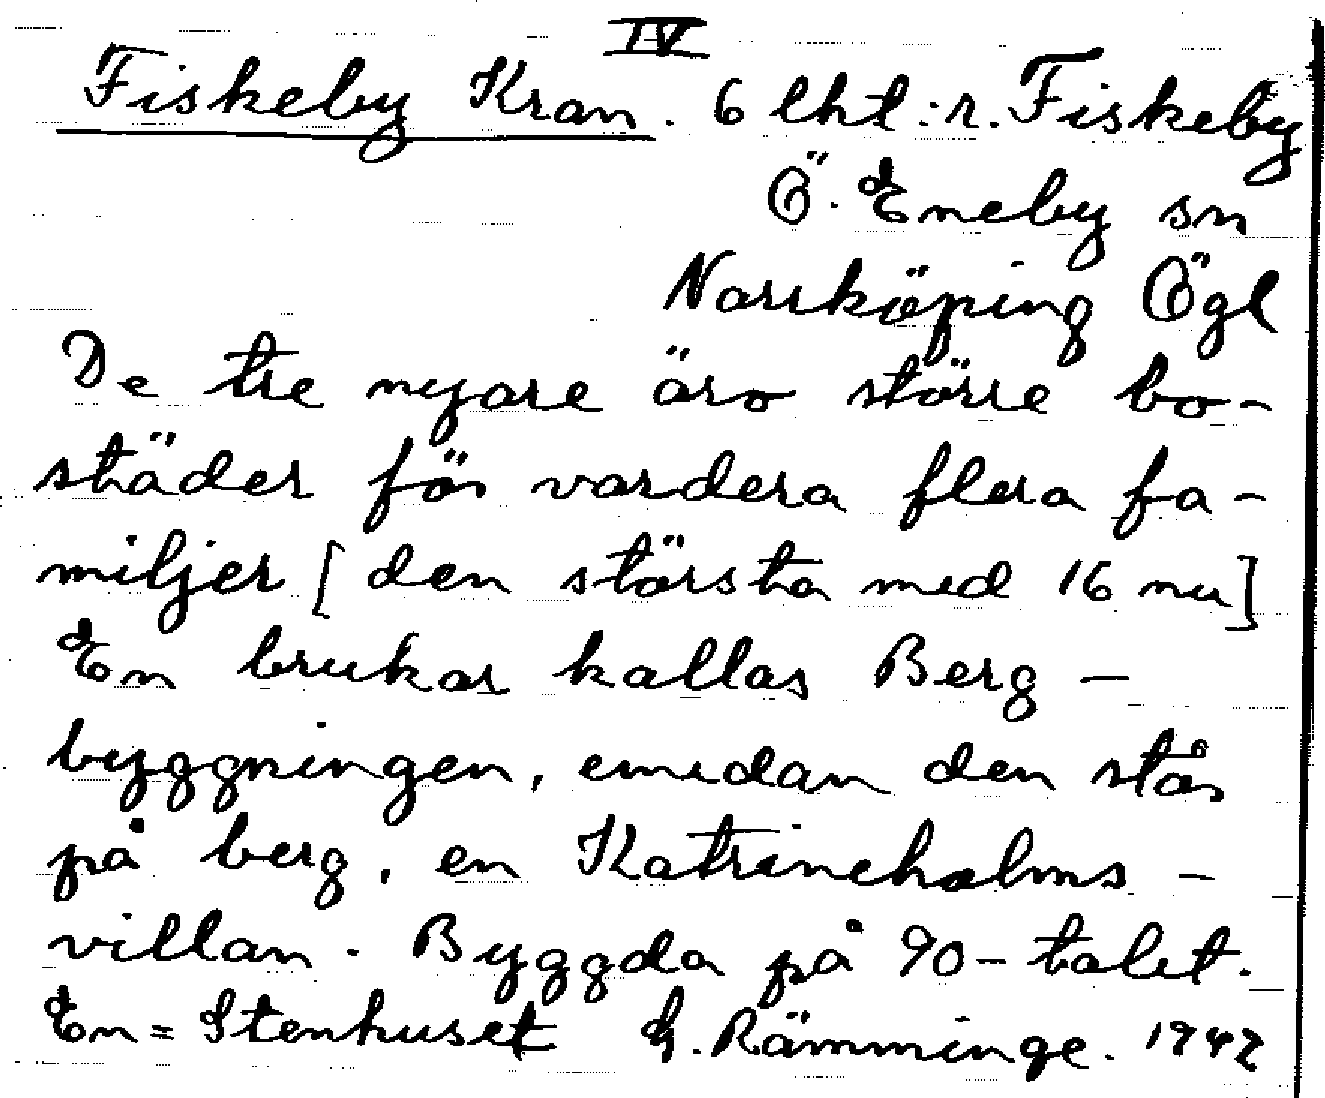 IV
Fiskeby Kran. 6 lht :r. Fiskeby
Ö. Eneby sn
Norrköping Ögl
De tre nyare äro större bo-
städer för vardera flera fa-
miljer [den största med 16 nu]
En brukar kallas Berg-
byggningen, emedan den står
på berg, en Katrineholms-
villan. Byggda på 90-talet.
En = Stenhuset G. Rämminge. 1942